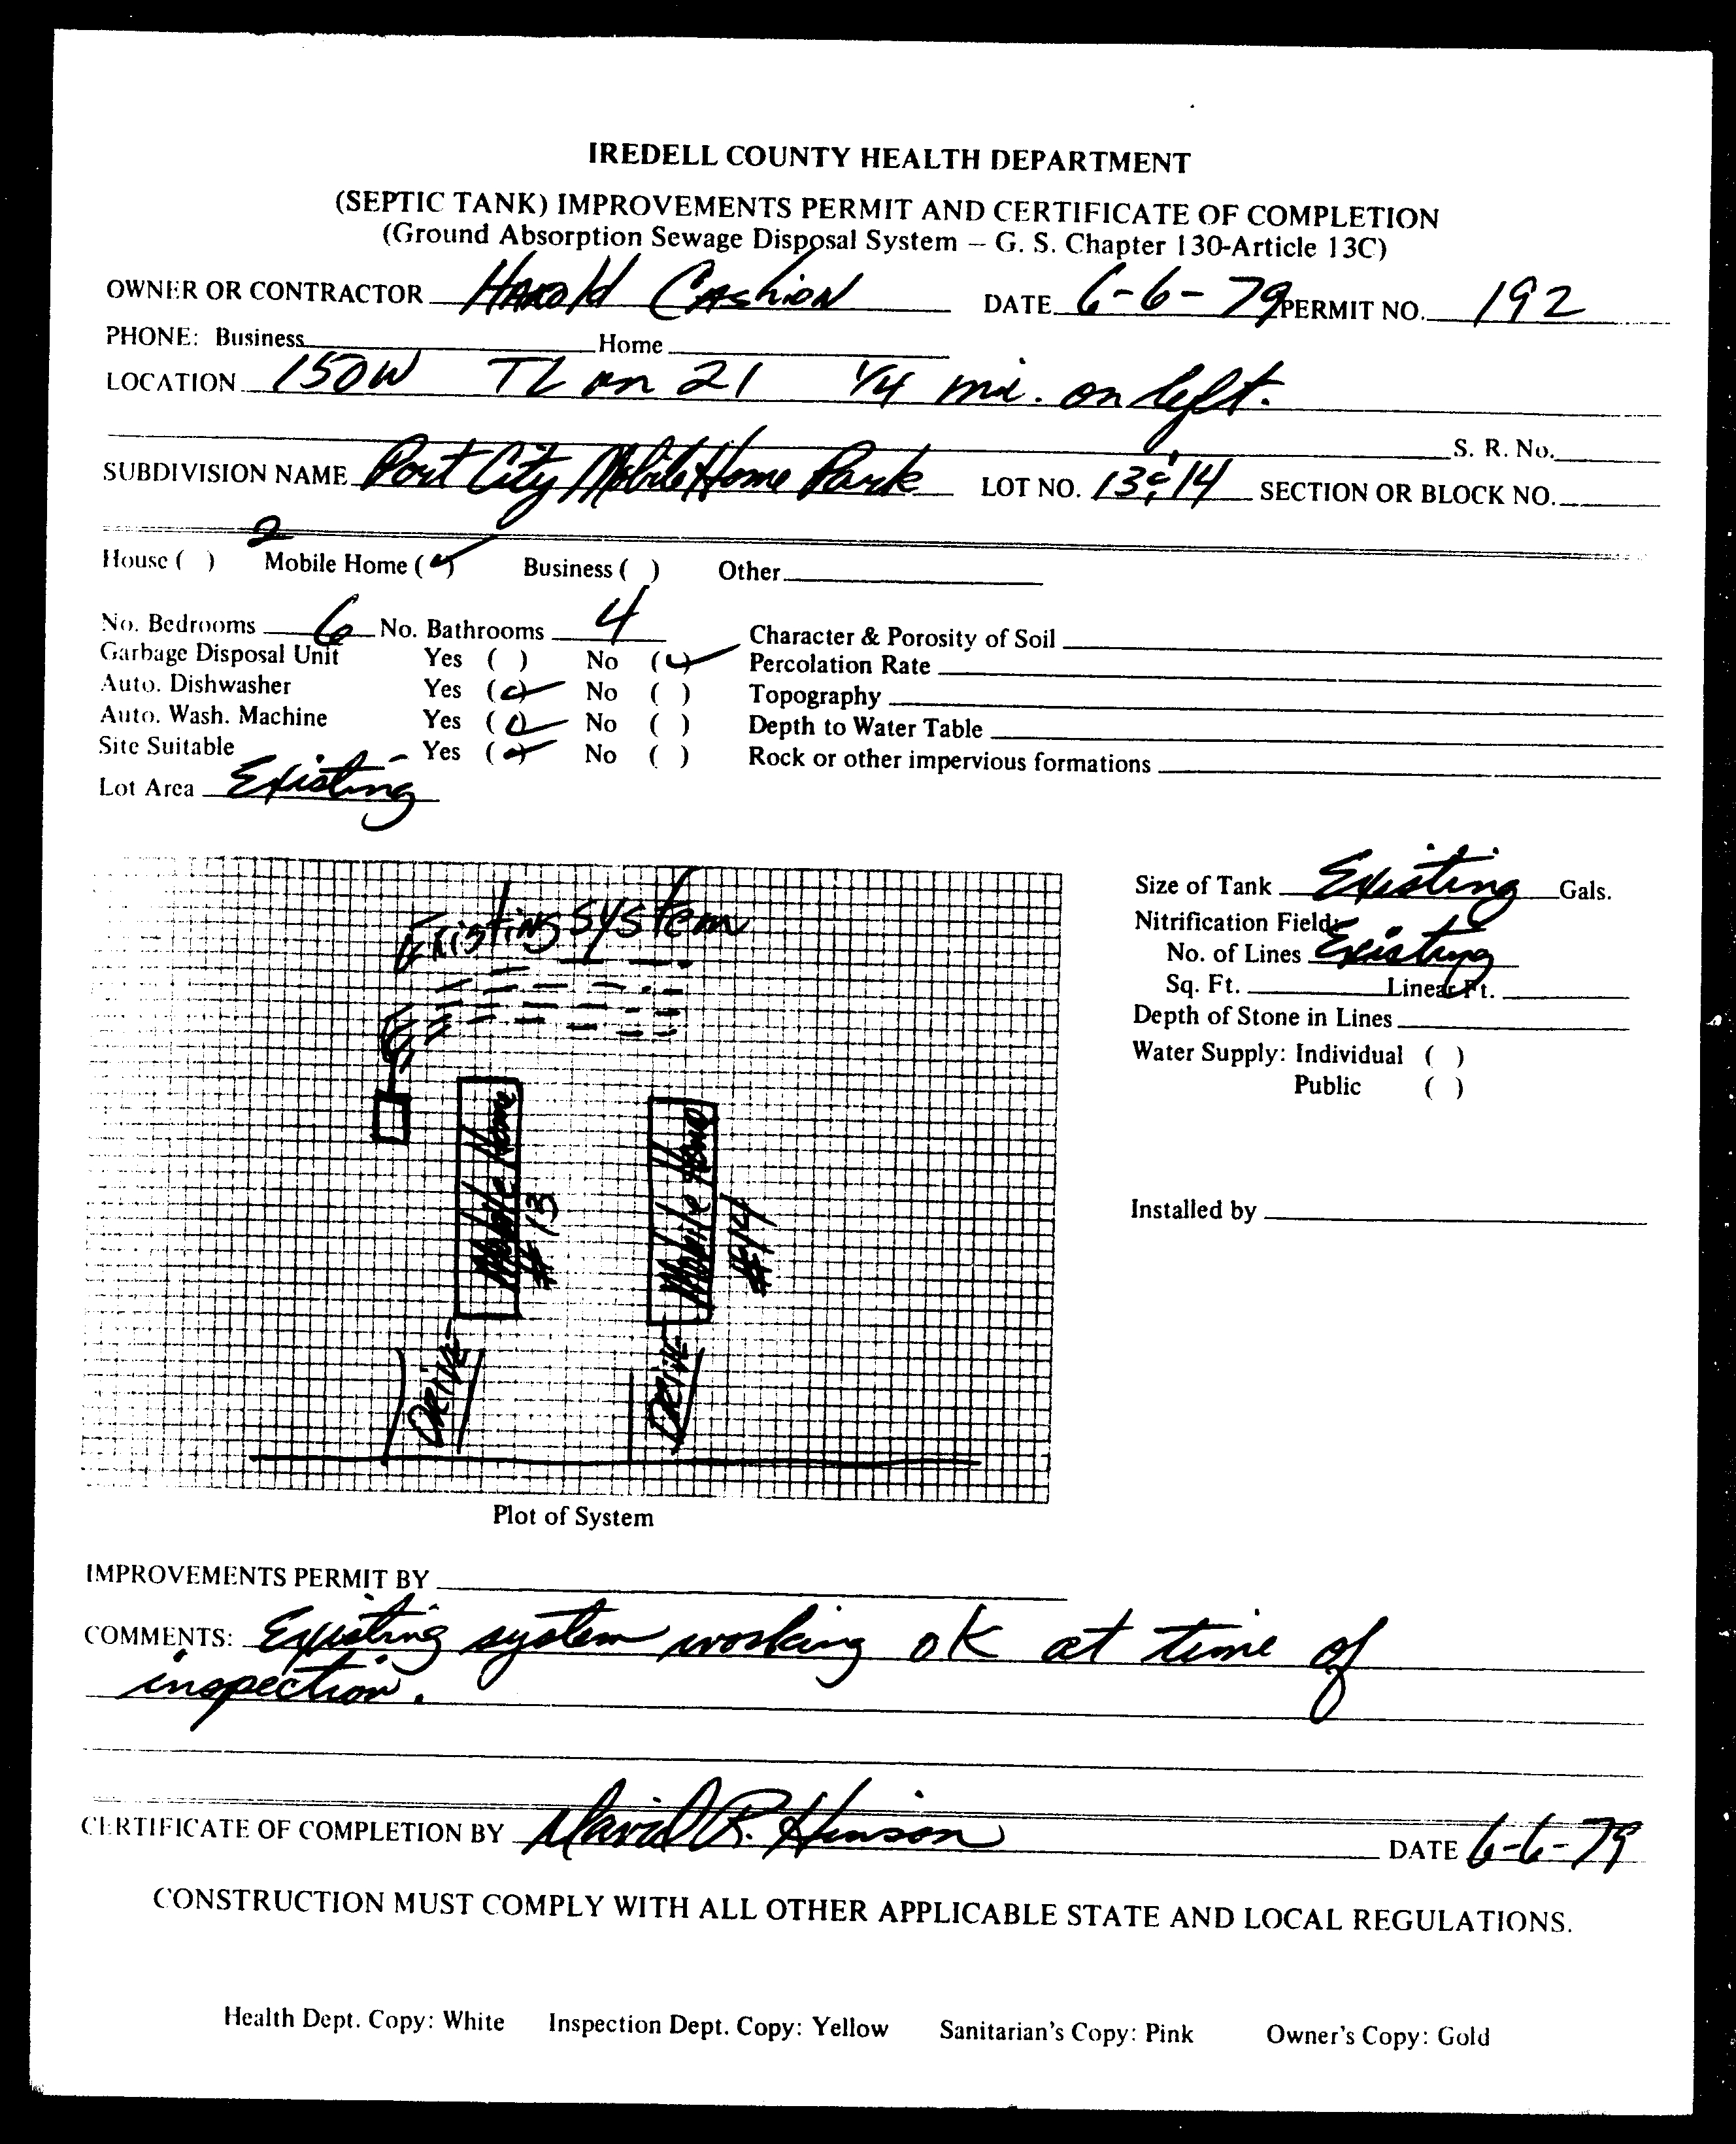 IREDELL COUNTY HEALTH DEPARTMENT
(SEPTIC TANK) IMPROVEMENTS PERMIT AND CERTIFICATE OF COMPLETION
(Ground Absorption Sewage Disposal System – G. S. Chapter 130-Article 13C)
OWNER OR CONTRACTOR Harold Cashion DATE 6-6-79 PERMIT NO. 192
PHONE: Business Home
LOCATION 150W TL on 21 1/4 mi. on left.
S. R. No.
SUBDIVISION NAME Port City Mobile Home Park LOT NO. 13 & 14 SECTION OR BLOCK NO.
2
House ( ) Mobile Home (✓) Business ( ) Other
No. Bedrooms 6 No. Bathrooms 4 Character & Porosity of Soil
Garbage Disposal Unit Yes ( ) No (✓) Percolation Rate
Auto. Dishwasher Yes (✓) No ( ) Topography
Auto. Wash. Machine Yes (✓) No ( ) Depth to Water Table
Site Suitable Yes (✓) No ( ) Rock or other impervious formations
Lot Area Existing
Existing system
Mobile Home
#13
Mobile Home
#14
Drive
Drive
Plot of System
Size of Tank Existing Gals.
Nitrification Field:
No. of Lines Existing
Sq. Ft. Linear Ft.
Depth of Stone in Lines
Water Supply: Individual ( )
Public ( )
Installed by
IMPROVEMENTS PERMIT BY
COMMENTS: Existing system working ok at time of
inspection.
CERTIFICATE OF COMPLETION BY David R. Hinson DATE 6-6-79
CONSTRUCTION MUST COMPLY WITH ALL OTHER APPLICABLE STATE AND LOCAL REGULATIONS.
Health Dept. Copy: White Inspection Dept. Copy: Yellow Sanitarian's Copy: Pink Owner's Copy: Gold